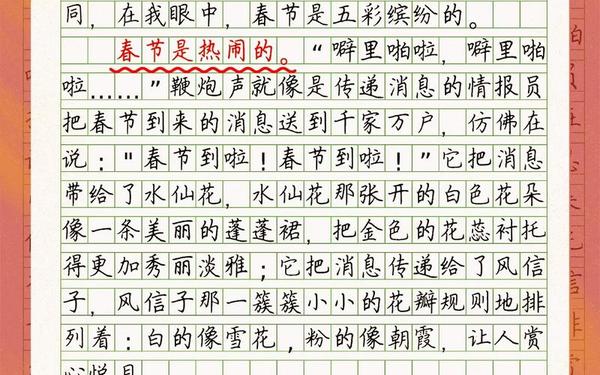 同，在我眼中，春节是五彩缤纷的。
春节是热闹的。“噼里啪啦，噼里啪
啦……”鞭炮声就像是传递消息的情报员
把春节到来的消息送到千家万户，仿佛在
说："春节到啦！春节到啦！”它把消息
带给了水仙花，水仙花那张开的白色花朵
像一条美丽的蓬蓬裙，把金色的花蕊衬托
得更加秀丽淡雅；它把消息传递给了风信
子，风信子那一簇簇小小的花瓣规则地排
列着：白的像雪花，粉的像朝霞，让人赏
心悦目